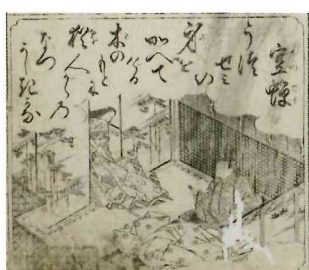 空蝉
うつ
せミの
身を
かへて
ける
木の
もとに
猶人からの
なつ
かしきかな